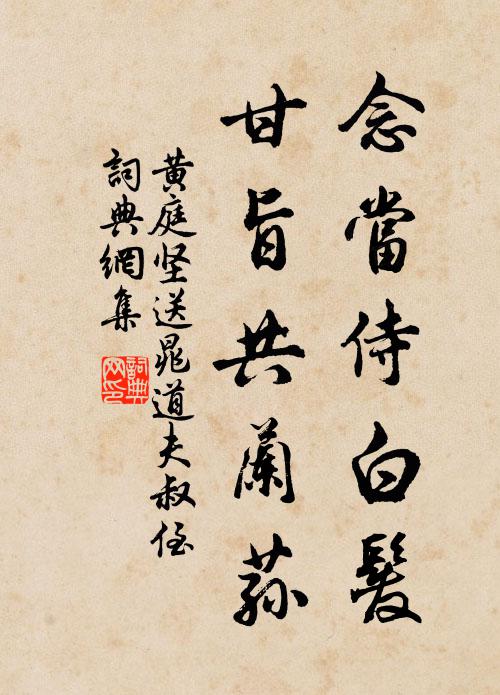 念當侍白髮
甘旨共蘭蓀
黄庭坚送晁道夫叔侄
詞典網集
詞典
网印